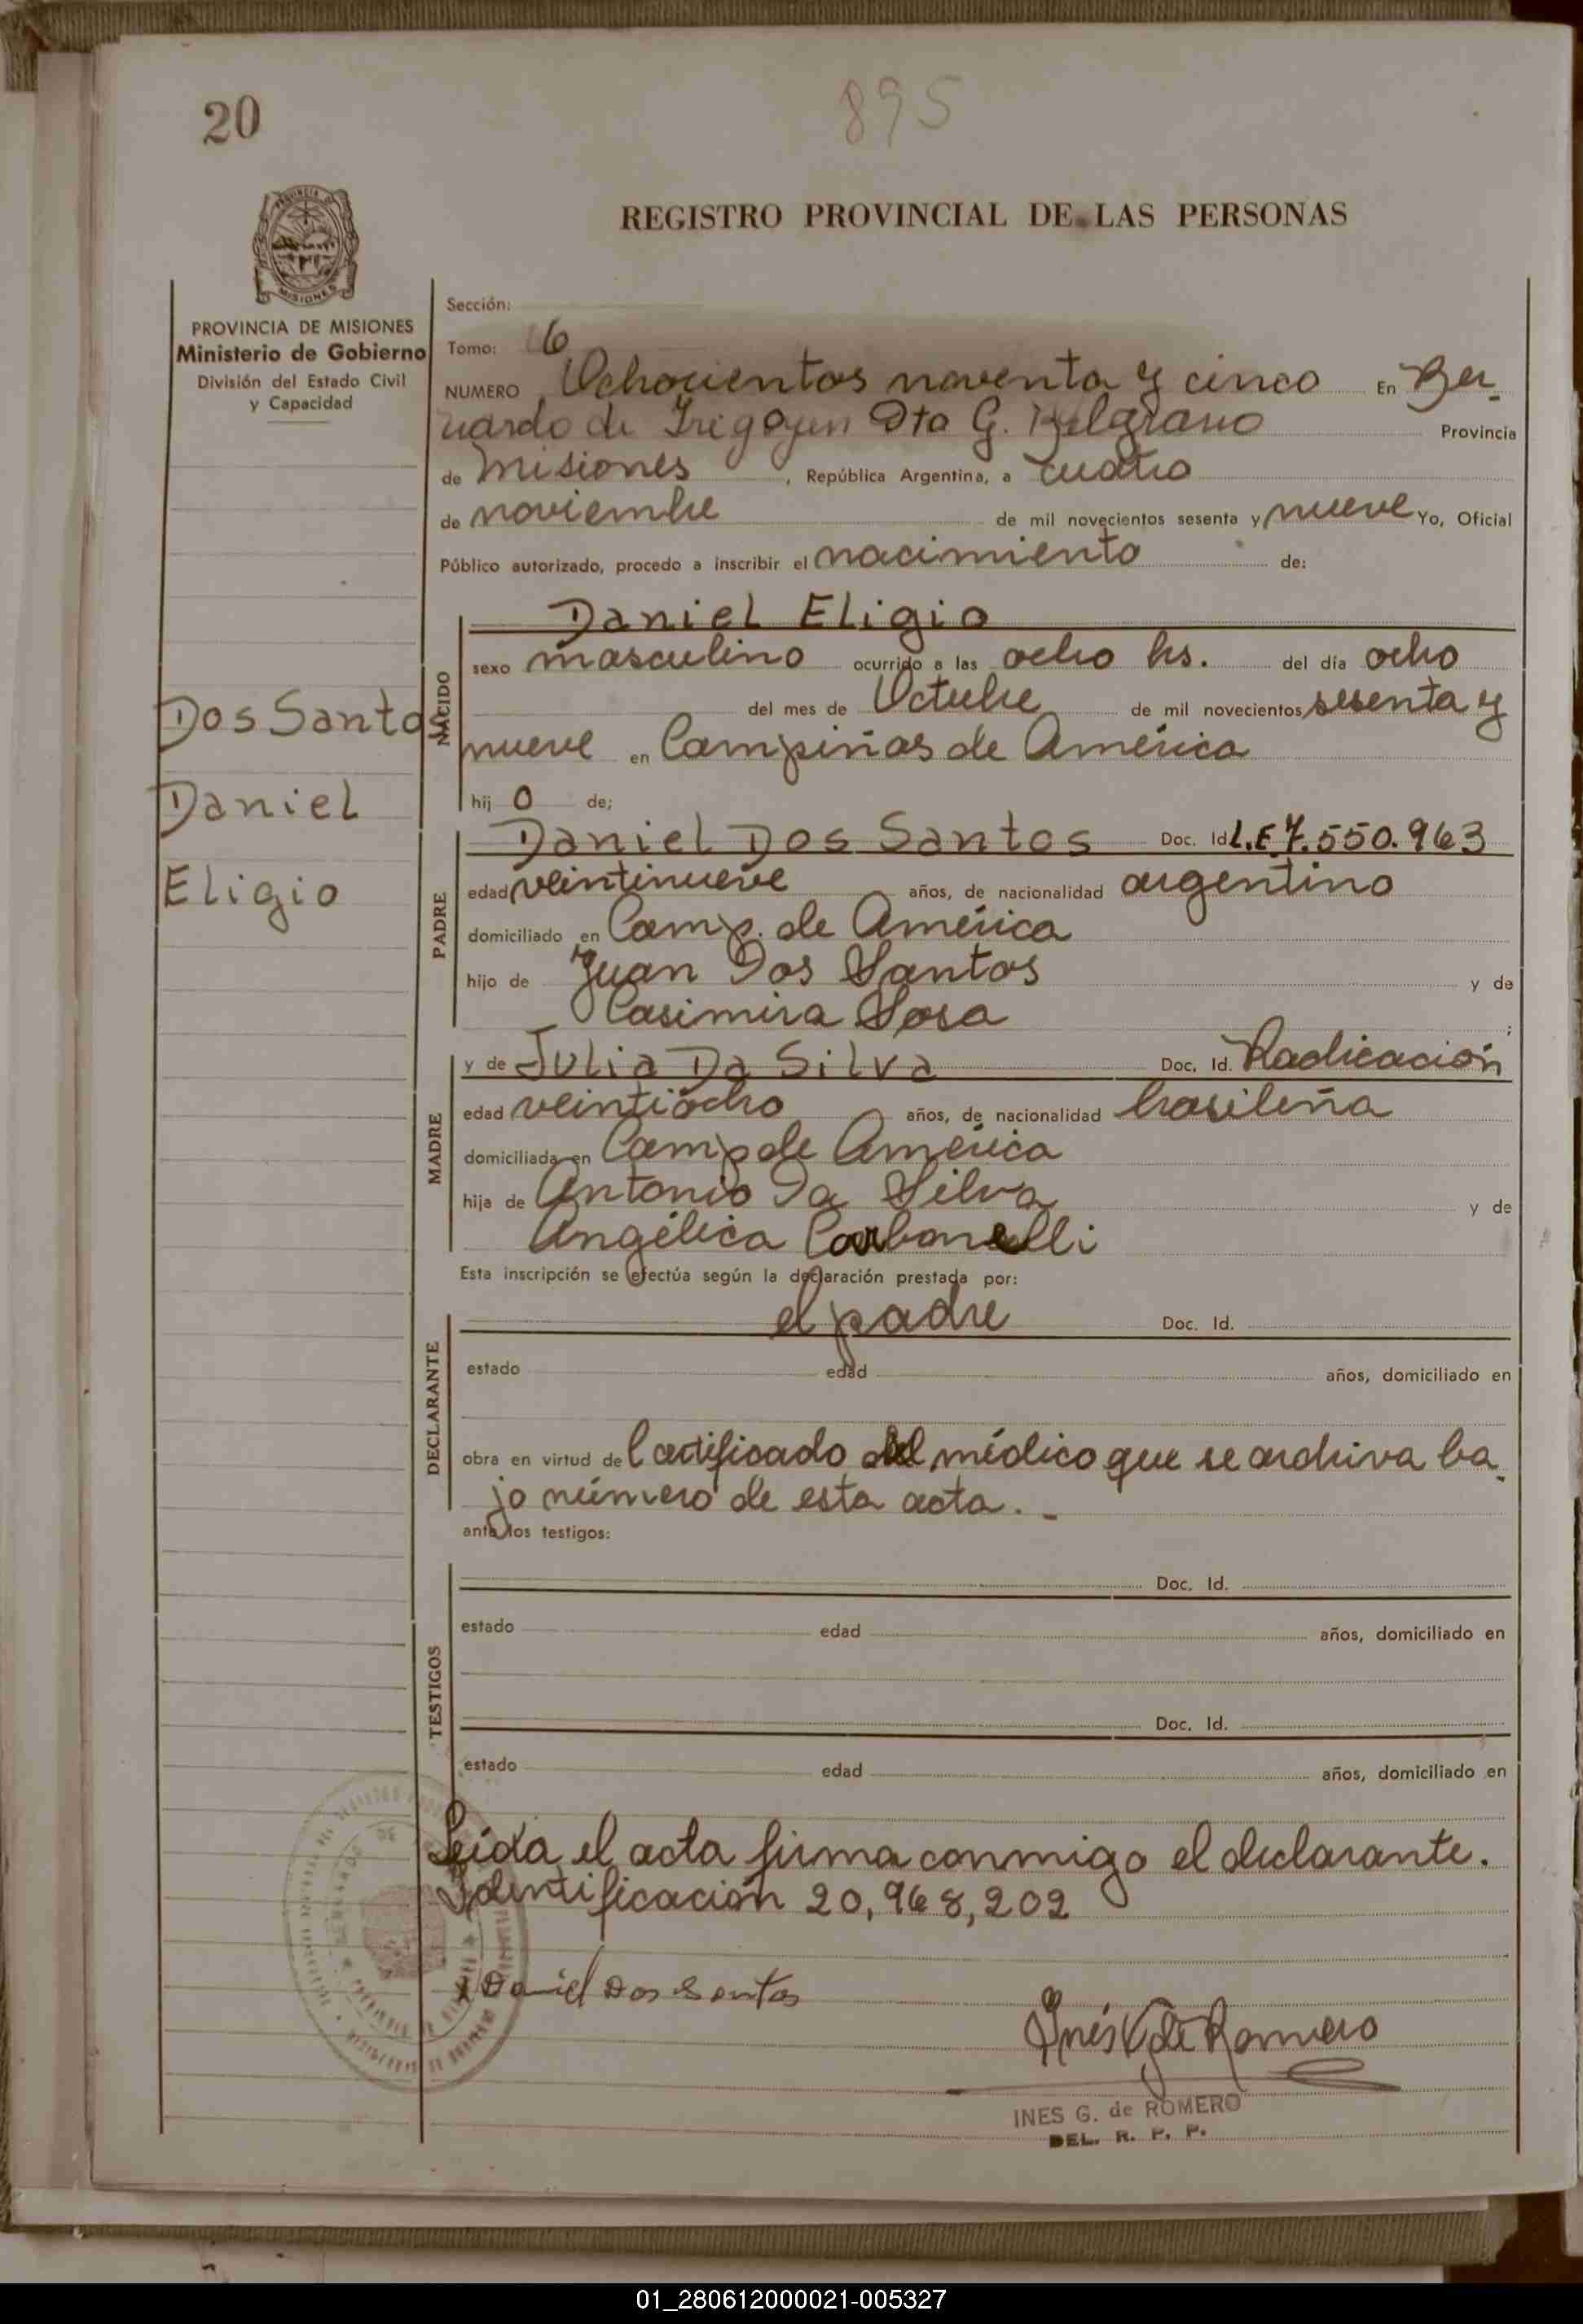 20
895
REGISTRO PROVINCIAL DE LAS PERSONAS
PROVINCIA DE MISIONES
Ministerio de Gobierno
División del Estado Civil
y Capacidad
Sección:
Tomo: 6
NUMERO Ochocientos noventa y cinco En Ber-
nardo de Irigoyen Dto G. Belgrano Provincia
de Misiones, República Argentina, a cuatro
de noviembre de mil novecientos sesenta y nueve Yo, Oficial
Público autorizado, procedo a inscribir el nacimiento de:
Dos Santos
Daniel
Eligio
NACIDO
Daniel Eligio
sexo masculino ocurrido a las ocho hs. del día ocho
del mes de Octubre de mil novecientos sesenta y
nueve en Campiñas de América
hij o de;
PADRE
Daniel Dos Santos Doc. Id L.E 7.550.963
edad veintinueve años, de nacionalidad argentino
domiciliado en Camp. de América
hijo de Juan Dos Santos y de
Casimira Sosa ;
MADRE
y de Julia Da Silva Doc. Id. Radicación
edad veintiocho años, de nacionalidad brasileña
domiciliada en Camp de América
hija de Antonio Da Silva y de
Angélica Carbonelli
Esta inscripción se efectúa según la declaración prestada por:
DECLARANTE
el padre Doc. Id.
estado edad años, domiciliado en
obra en virtud de certificado del médico que se archiva ba-
jo número de esta acta.-
ante los testigos:
TESTIGOS
Doc. Id.
estado edad años, domiciliado en
Doc. Id.
estado edad años, domiciliado en
Leída el acta firma conmigo el declarante.
Identificación 20,968,202
Daniel Dos Santos
Inés G de Romero
INES G. de ROMERO
DEL. R. P. P.
01_280612000021-005327